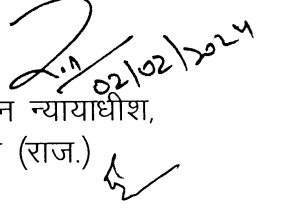 02/02/2024
न न्यायाधीश,
(राज.)